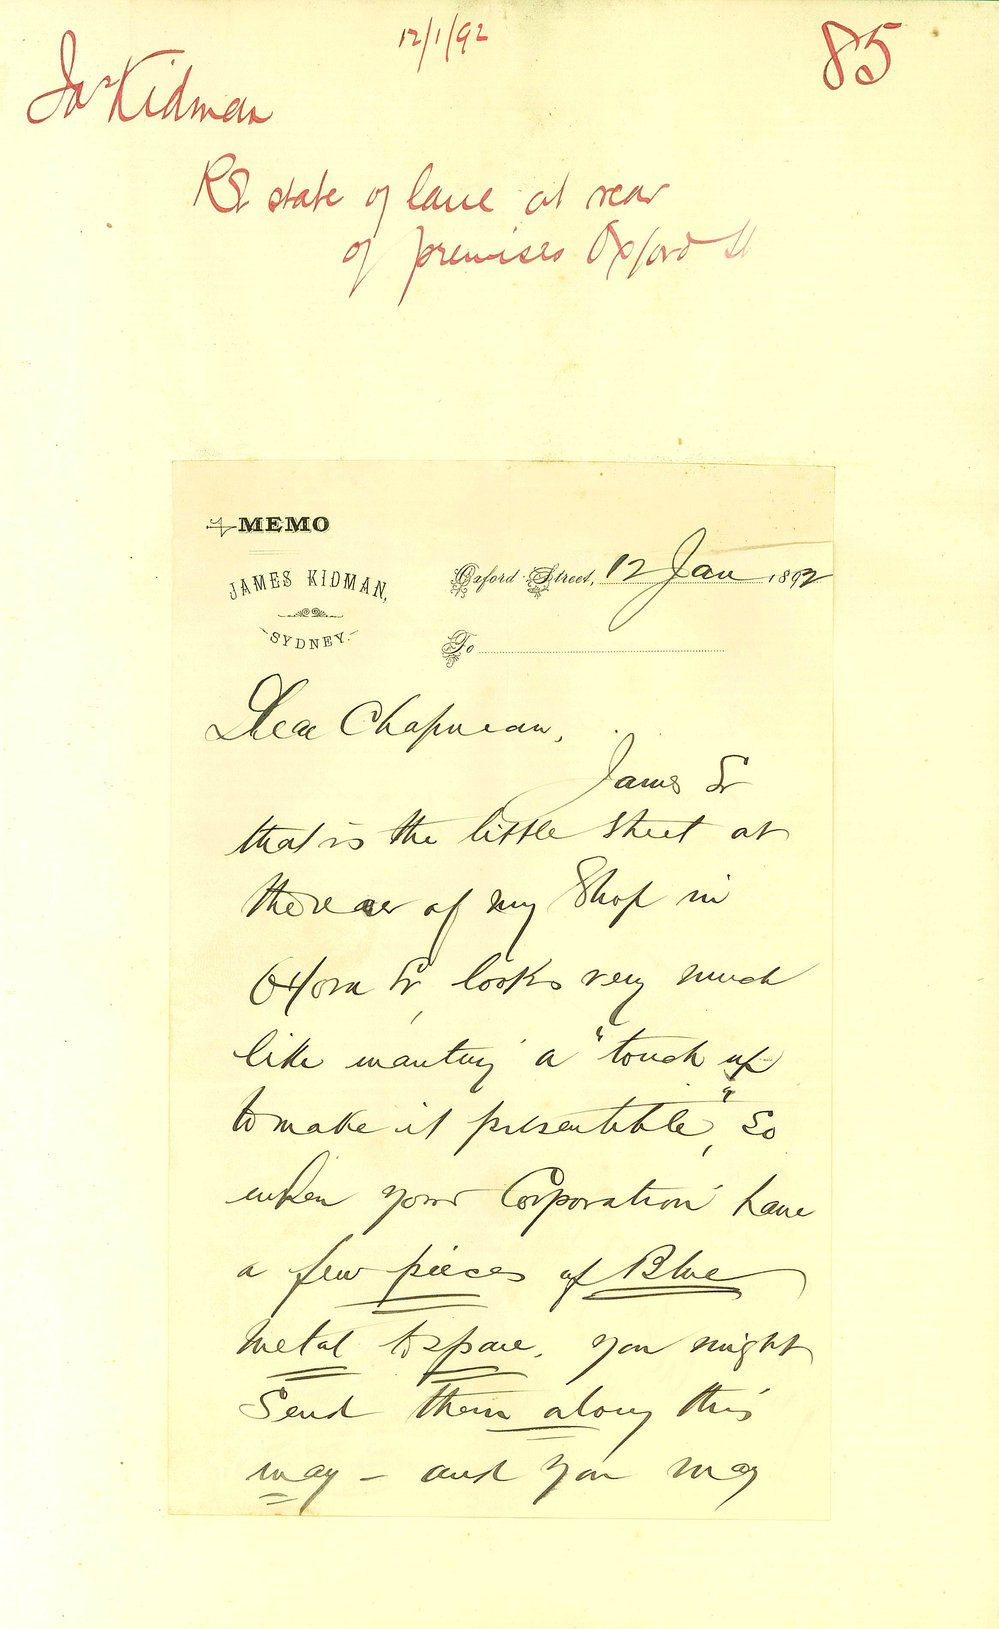 12/1/92
85
Jas Kidman
Re state of lane at rear
of premises Oxford St
MEMO
JAMES KIDMAN,
SYDNEY.
Oxford Street, 12 Jan 1892
To
Dear Chapman,
James St
that is the little street at
the rear of my Shop in
Oxford St, looks very much
like wanting a "touch up
to make it presentible", So
when your Corporation have
a few pieces of Blue
metal to spare, you might
Send them along this
way – and you may